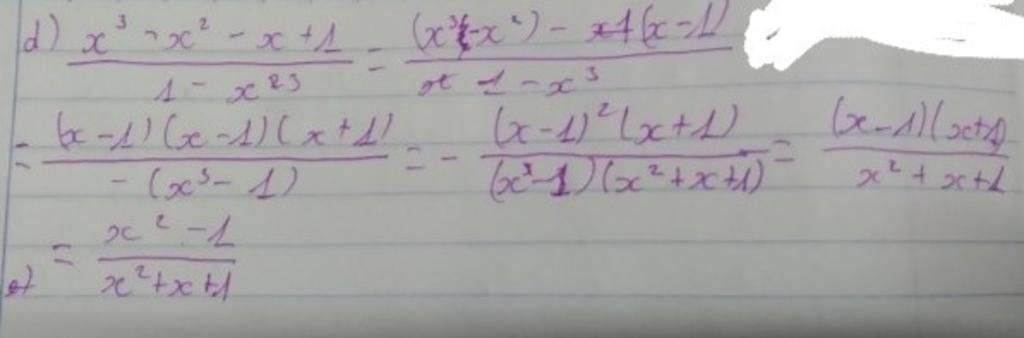 d) (x³ - x² - x + 1)/(1 - x³) = ((x³ - x²) - (x - 1))/(1 - x³)
= ((x - 1)(x - 1)(x + 1))/(-(x³ - 1)) = - ((x - 1)²(x + 1))/((x - 1)(x² + x + 1)) = ((x - 1)(x + 1))/(x² + x + 1)
= (x² - 1)/(x² + x + 1)
e)